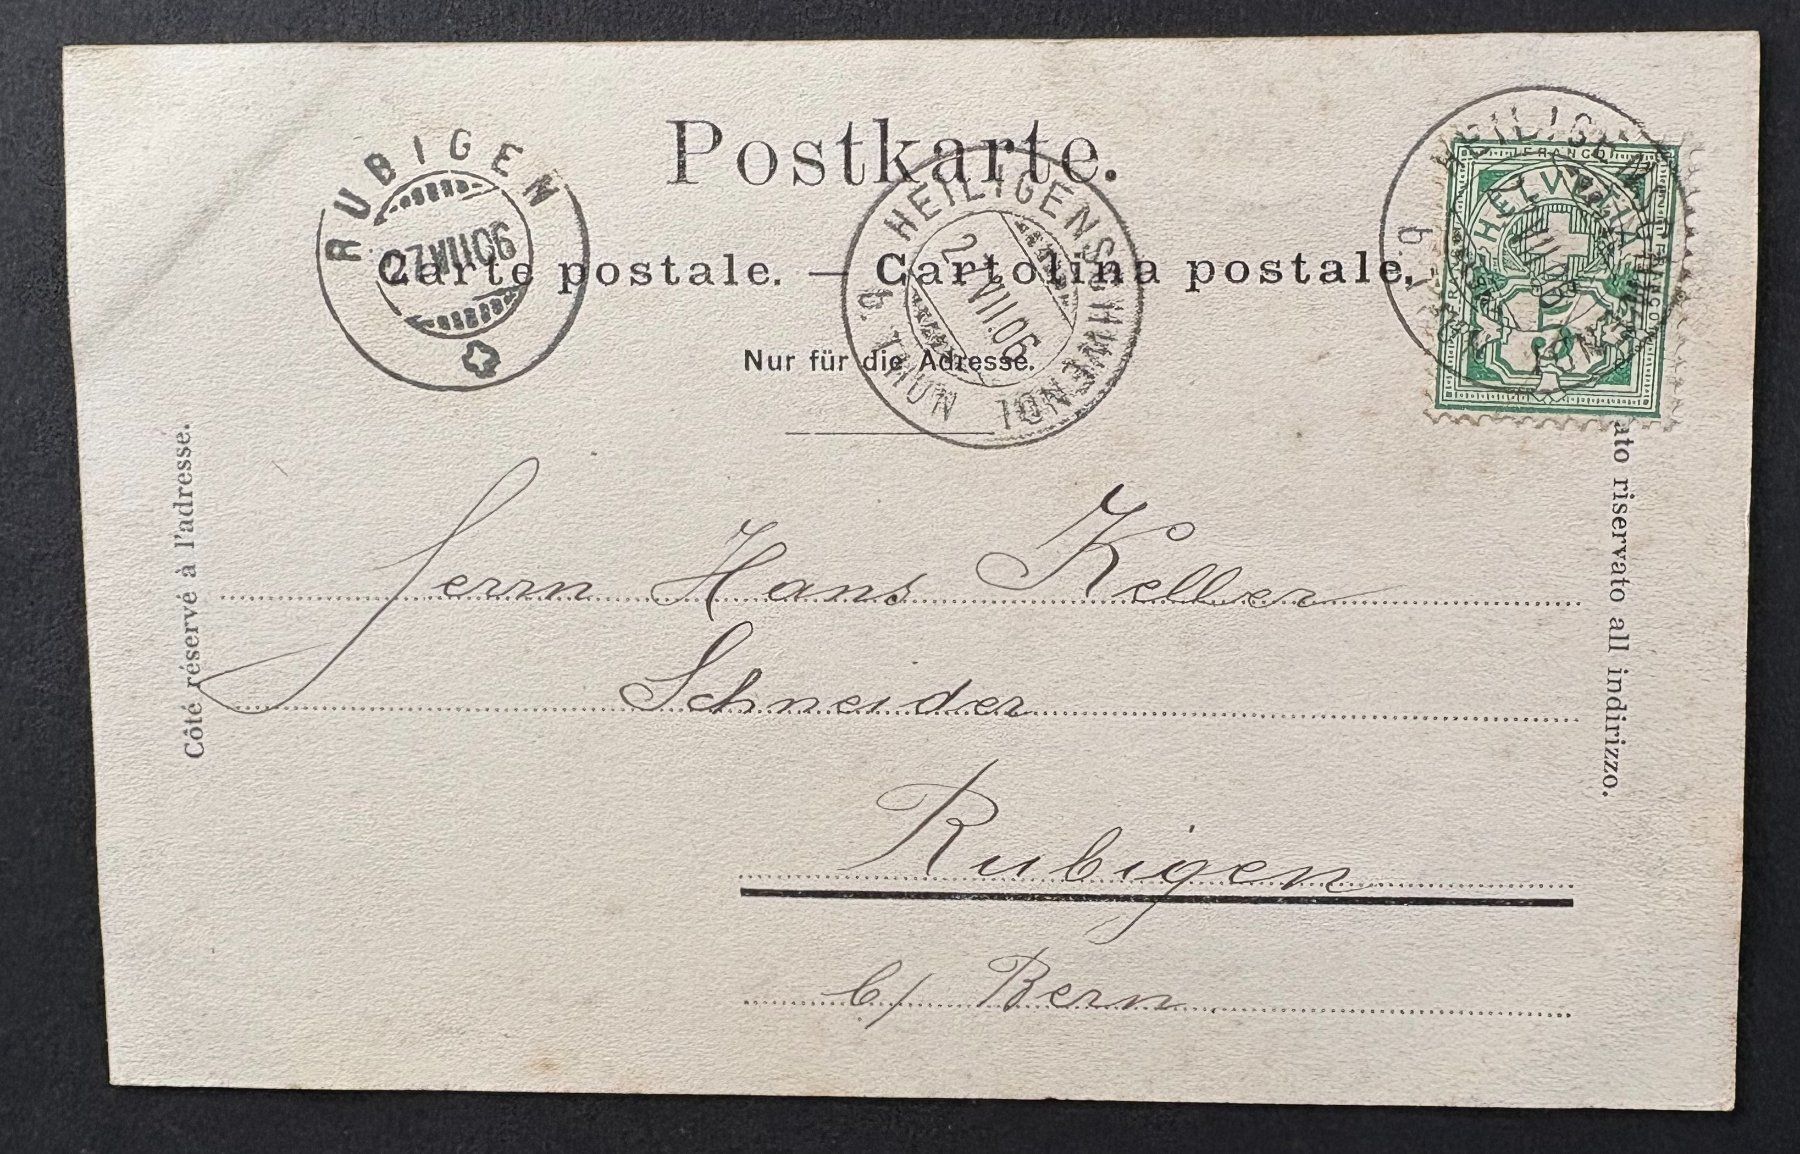 Postkarte.
Carte postale. — Cartolina postale.
Nur für die Adresse.
RUBIGEN
HEILIGENSCHWENDI
b. THUN
HEILIGENSCHWENDI
b.
FRANCO
HELVETIA
5
Côté réservé à l'adresse.
ato riservato all indirizzo.
Herrn Hans Keller
Schneider
Rubigen
b/ Bern